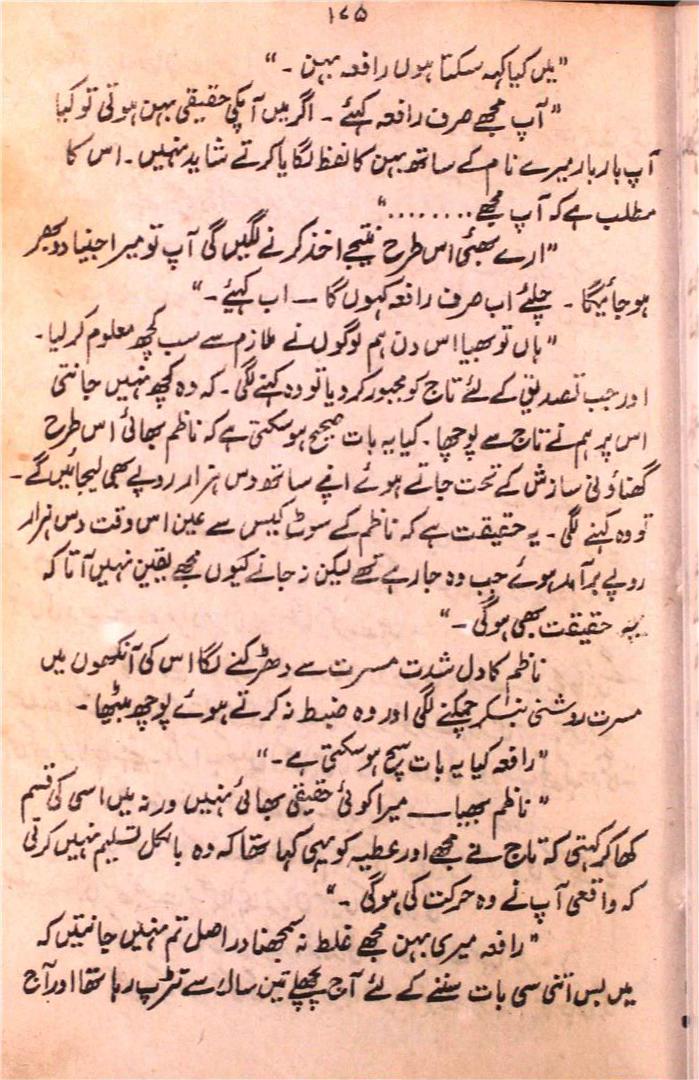 ۱۷۵
"میں کیا کہہ سکتا ہوں رافعہ بہن ۔"
"آپ مجھے صرف رافعہ کہئے ۔ اگر میں آپکی حقیقی بہن ہوتی تو کیا
آپ بار بار میرے نام کے ساتھ بہن کا لفظ لگایا کرتے شاید نہیں ۔ اس کا
مطلب ہے کہ آپ مجھے ........"
"ارے بھئی اس طرح نتیجے اخذ کرنے لگیں گی آپ تو میرا جینا دوبھر
ہو جائیگا ۔ چلئے اب صرف رافعہ کہوں گا — اب کہیئے ۔"
"ہاں تو بھیا اس دن ہم لوگوں نے ملازم سے سب کچھ معلوم کر لیا ۔
اور جب تصدیق کے لئے تاج کو مجبور کر دیا تو وہ کہنے لگی ۔ کہ وہ کچھ نہیں جانتی
اس پر ہم نے تاج سے پوچھا ۔ کیا یہ بات صحیح ہو سکتی ہے کہ ناظم بھائی اس طرح
گھناؤنی سازش کے تحت جاتے ہوئے اپنے ساتھ دس ہزار روپے بھی لیجائیں گے ۔
تو وہ کہنے لگی ۔ یہ حقیقت ہے کہ ناظم کے سوٹ کیس سے عین اس وقت دس ہزار
روپے برآمد ہوئے جب وہ جا رہے تھے لیکن نہ جانے کیوں مجھے یقین نہیں آتا کہ
یہ حقیقت بھی ہوگی ۔"
ناظم کا دل شدت مسرت سے دھڑکنے لگا اس کی آنکھوں میں
مسرت روشنی بنکر چمکنے لگی اور وہ ضبط نہ کرتے ہوئے پوچھ بیٹھا ۔
"رافعہ کیا یہ بات سچ ہو سکتی ہے ۔"
"ناظم بھیا — میرا کوئی حقیقی بھائی نہیں ورنہ میں اسی کی قسم
کھا کر کہتی کہ تاج نے مجھے اور عطیہ کو یہی کہا تھا کہ وہ بالکل تسلیم نہیں کرتی
کہ واقعی آپ نے وہ حرکت کی ہوگی ۔"
"رافعہ میری بہن مجھے غلط نہ سمجھنا دراصل تم نہیں جانتیں کہ
میں بس اتنی سی بات سننے کے لئے آج پچھلے تین سال سے تڑپ رہا تھا اور آج